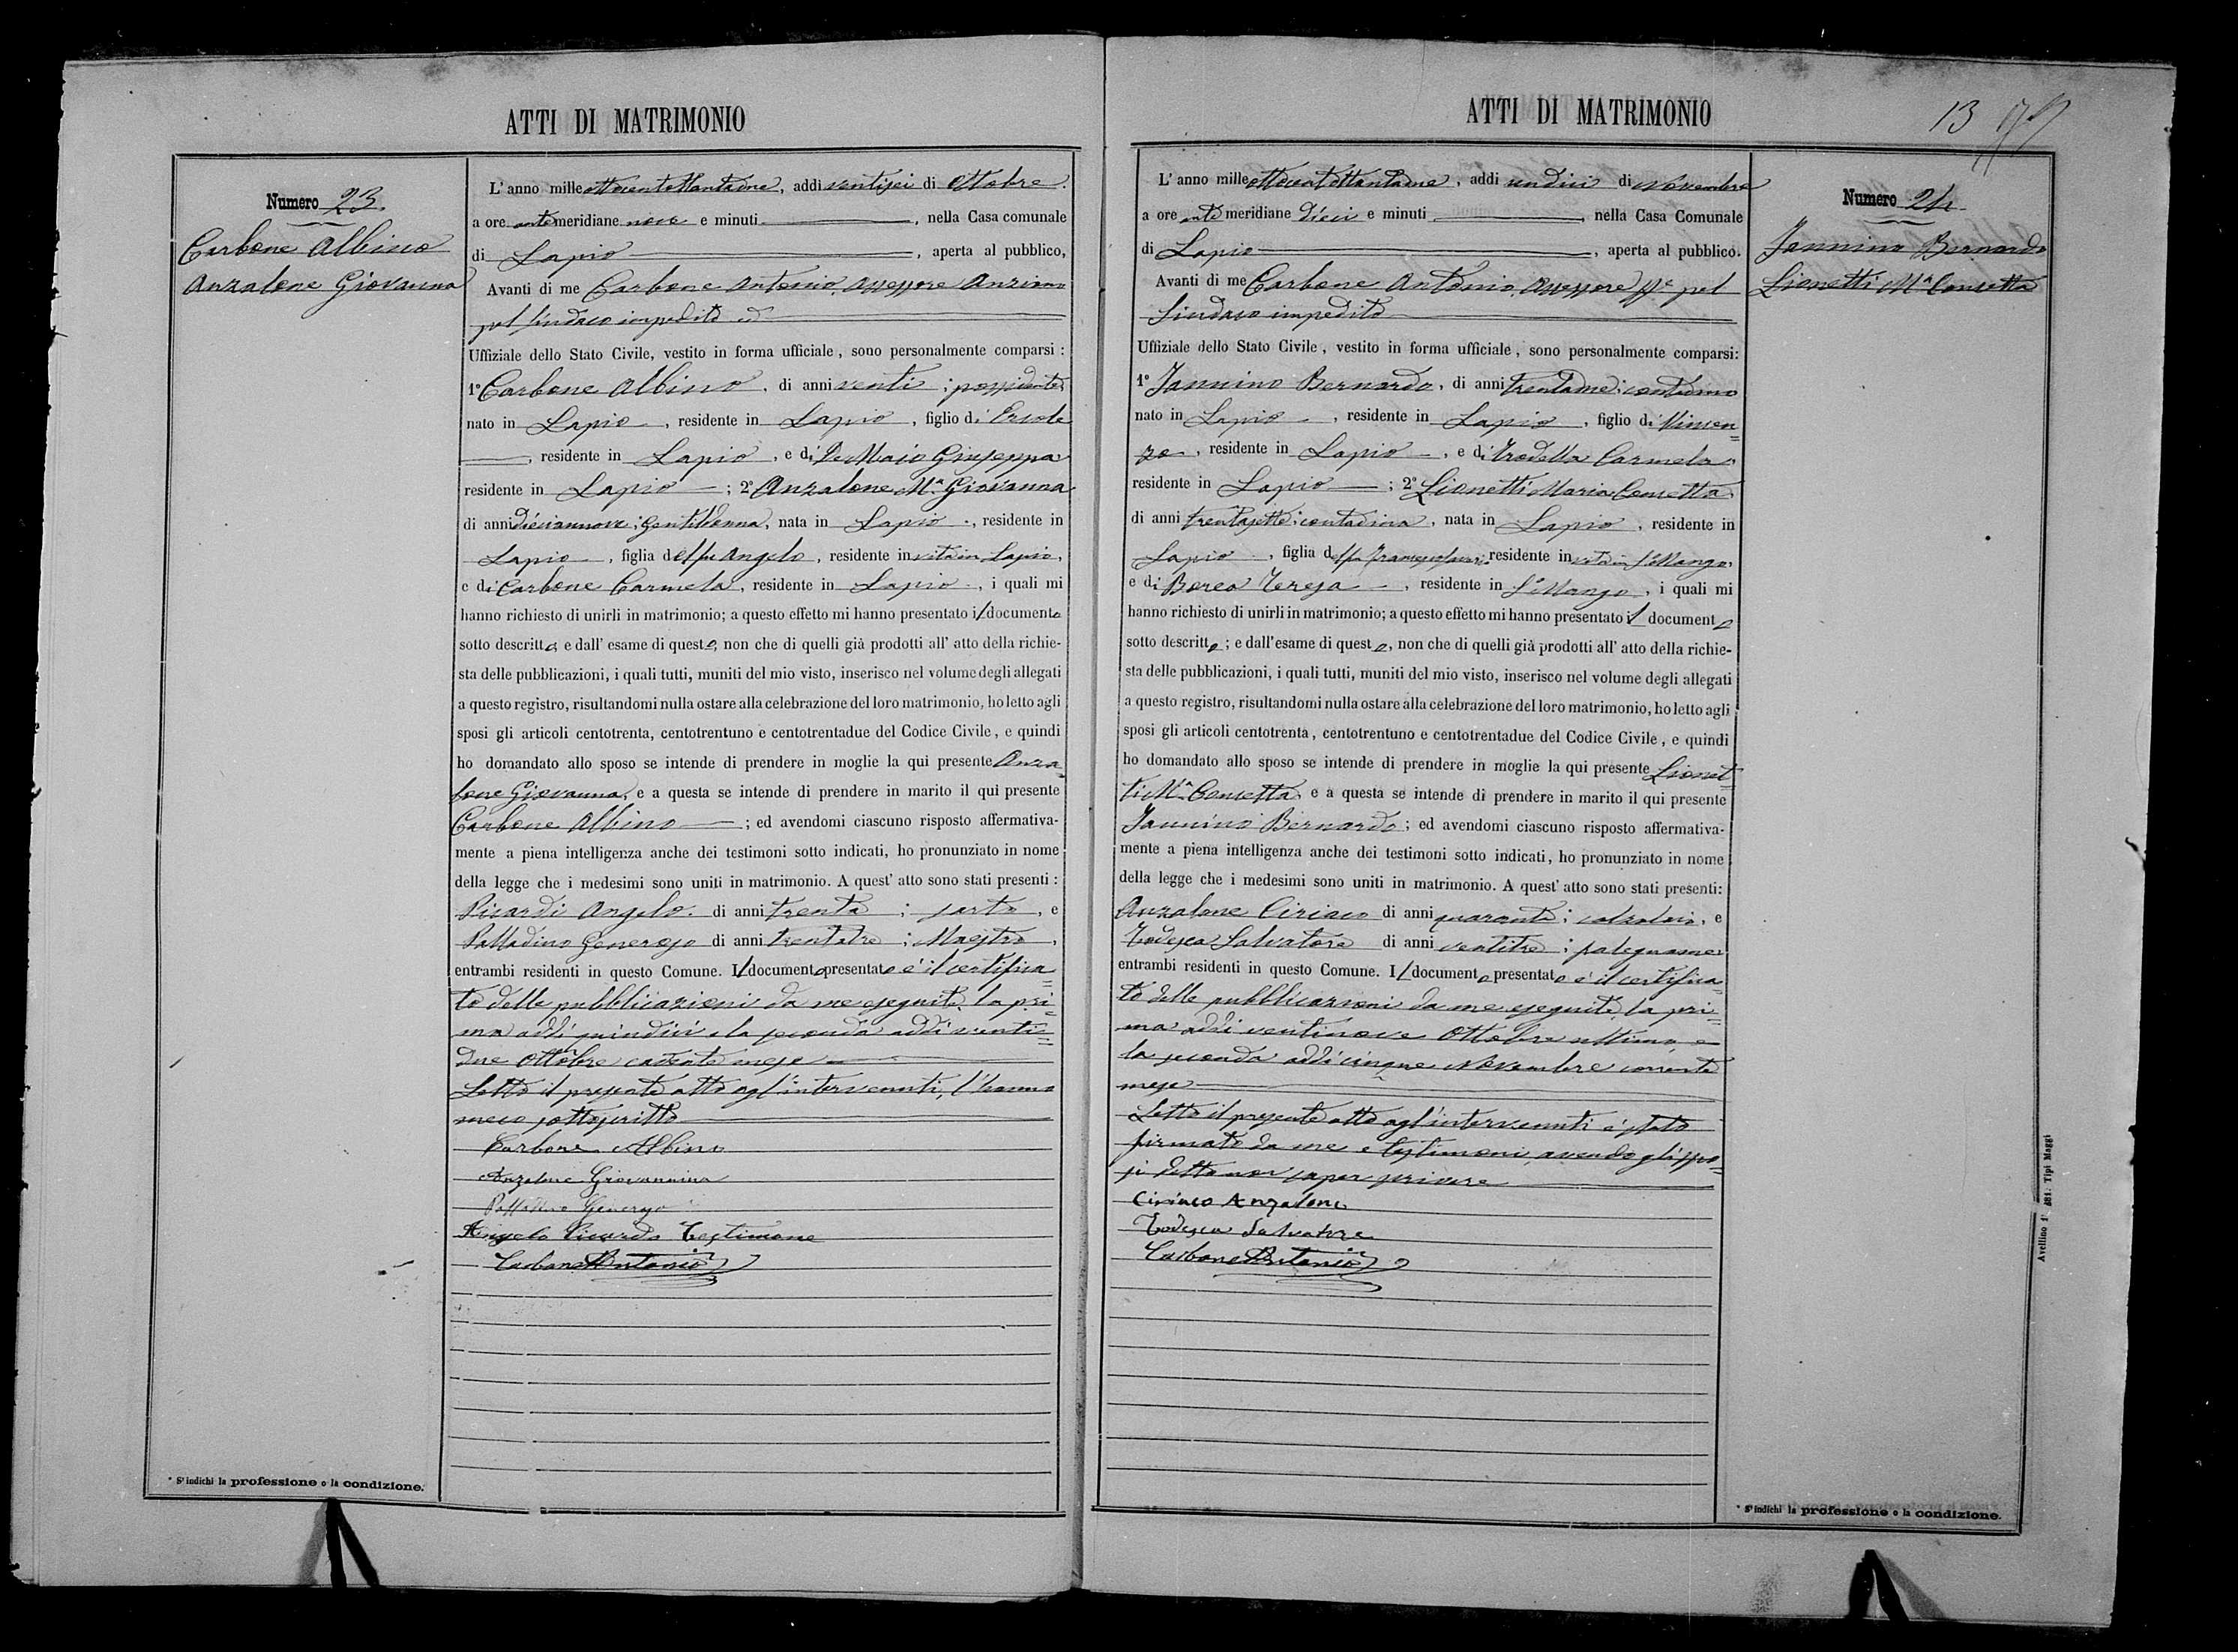 ATTI DI MATRIMONIO
Numero 23.
Carbone Albino
Anzalone Giovanna
L' anno mille ottocentottantadue, addi ventisei di Ottobre
a ore antemeridiane nove e minuti, nella Casa comunale
di Lapio, aperta al pubblico,
Avanti di me Carbone Antonio, Assessore Anziano
pel Sindaco impedito
Uffiziale dello Stato Civile, vestito in forma ufficiale, sono personalmente comparsi:
1° Carbone Albino, di anni venti; possidente,
nato in Lapio, residente in Lapio, figlio di Ercole
, residente in Lapio, e di De Maio Giuseppa
residente in Lapio; 2° Anzalone Mª. Giovanna
di anni diciannove; Gentildonna, nata in Lapio, residente in
Lapio, figlia del fu Angelo, residente in vita in Lapio,
e di Carbone Carmela, residente in Lapio, i quali mi
hanno richiesto di unirli in matrimonio; a questo effetto mi hanno presentato il documento
sotto descritto; e dall' esame di questo, non che di quelli già prodotti all' atto della richie-
sta delle pubblicazioni, i quali tutti, muniti del mio visto, inserisco nel volume degli allegati
a questo registro, risultandomi nulla ostare alla celebrazione del loro matrimonio, ho letto agli
sposi gli articoli centotrenta, centotrentuno e centotrentadue del Codice Civile, e quindi
ho domandato allo sposo se intende di prendere in moglie la qui presente Anza=
lone Giovanna, e a questa se intende di prendere in marito il qui presente
Carbone Albino; ed avendomi ciascuno risposto affermativa-
mente a piena intelligenza anche dei testimoni sotto indicati, ho pronunziato in nome
della legge che i medesimi sono uniti in matrimonio. A quest' atto sono stati presenti:
Picardi Angelo, di anni trenta; sarto, e
Palladino Generoso di anni trentatre; Maestro,
entrambi residenti in questo Comune. Il documento presentato è il certifica=
to delle pubblicazioni da me eseguite, la pri=
ma addì quindici e la seconda addì venti=
due Ottobre cadente mese
Letto il presente atto agl'intervenuti, l'hanno
meco sottoscritto
Carbone Albino
Anzalone Giovannina
Palladino Generoso
Angelo Picardi Testimone
Carbone Antonio
* S' indichi la professione o la condizione.
ATTI DI MATRIMONIO
13
Numero 24
Jannino Bernardo
Lionetti Mª Concetta
L' anno mille ottocentottantadue, addi undici di Novembre
a ore antemeridiane dieci e minuti, nella Casa Comunale
di Lapio, aperta al pubblico.
Avanti di me Carbone Antonio, Assessore ff.e pel
Sindaco impedito
Uffiziale dello Stato Civile, vestito in forma ufficiale, sono personalmente comparsi:
1° Jannino Bernardo, di anni trentadue; contadino
nato in Lapio, residente in Lapio, figlio di Vincen=
zo, residente in Lapio, e di Carmela
residente in Lapio; 2° Lionetti Maria Concetta,
di anni trentasette; contadina, nata in Lapio, residente in
Lapio, figlia del fu residente in vita in S. Mango,
e di Borea Teresa, residente in S. Mango, i quali mi
hanno richiesto di unirli in matrimonio; a questo effetto mi hanno presentato il documento
sotto descritto; e dall'esame di questo, non che di quelli già prodotti all' atto della richie-
sta delle pubblicazioni, i quali tutti, muniti del mio visto, inserisco nel volume degli allegati
a questo registro, risultandomi nulla ostare alla celebrazione del loro matrimonio, ho letto agli
sposi gli articoli centotrenta, centotrentuno e centotrentadue del Codice Civile, e quindi
ho domandato allo sposo se intende di prendere in moglie la qui presente Lionet=
ti Mª Concetta e a questa se intende di prendere in marito il qui presente
Jannino Bernardo; ed avendomi ciascuno risposto affermativa-
mente a piena intelligenza anche dei testimoni sotto indicati, ho pronunziato in nome
della legge che i medesimi sono uniti in matrimonio. A quest' atto sono stati presenti:
Anzalone Ciriaco di anni quaranta; calzolaio, e
Todesca Salvatore di anni ventitre; falegname,
entrambi residenti in questo Comune. Il documento presentato è il certifica=
to delle pubblicazioni da me eseguite, la pri=
ma addì ventinove Ottobre ultimo, e
la seconda addì cinque Novembre corrente
mese
Letto il presente atto agl'intervenuti è stato
firmato da me e testimoni avendo gli spo=
si detto non saper scrivere
Ciriaco Anzalone
Todesca Salvatore
Carbone Antonio
* S' indichi la professione o la condizione.
Tipi Maggi